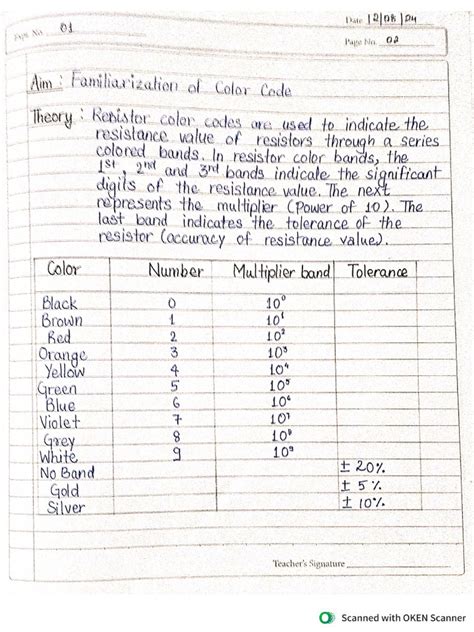 Date 12/08/24
Expt. No. 01
Page No. 02
Aim : Familiarization of Color Code
Theory : Resistor color codes are used to indicate the
resistance value of resistors through a series
colored bands. In resistor color bands, the
1st, 2nd and 3rd bands indicate the significant
digits of the resistance value. The next
represents the multiplier (Power of 10). The
last band indicates the tolerance of the
resistor (accuracy of resistance value).
Color Number Multiplier band Tolerance
Black 0 10⁰
Brown 1 10¹
Red 2 10²
Orange 3 10³
Yellow 4 10⁴
Green 5 10⁵
Blue 6 10⁶
Violet 7 10⁷
Grey 8 10⁸
White 9 10⁹
No Band ± 20%
Gold ± 5%
Silver ± 10%
Teacher's Signature
Scanned with OKEN Scanner